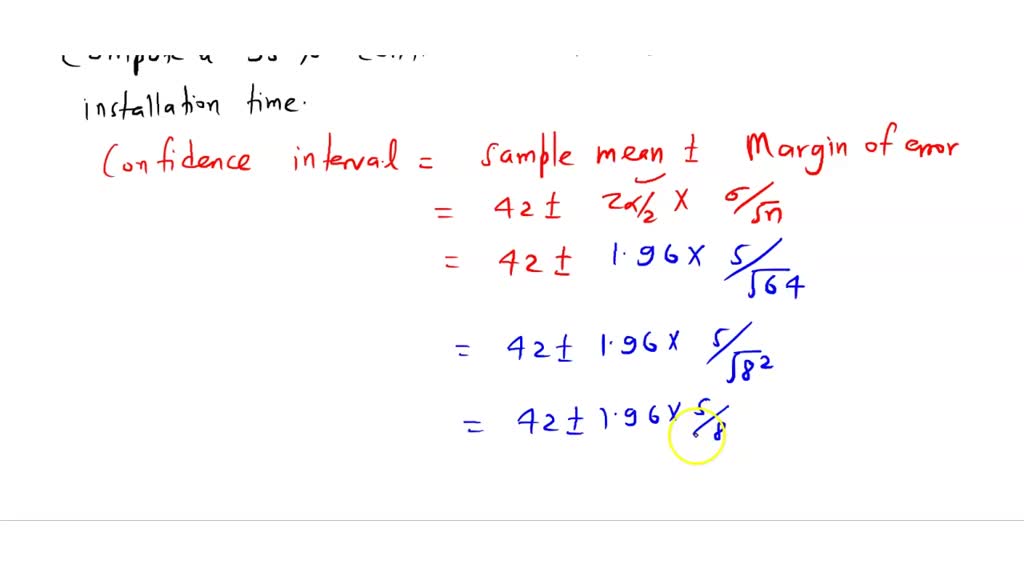 installation time.
Confidence interval = sample mean ± Margin of error
= 42 ± Zα/2 × σ/√n
= 42 ± 1.96 × 5/√64
= 42 ± 1.96 × 5/√8²
= 42 ± 1.96 × 5/8